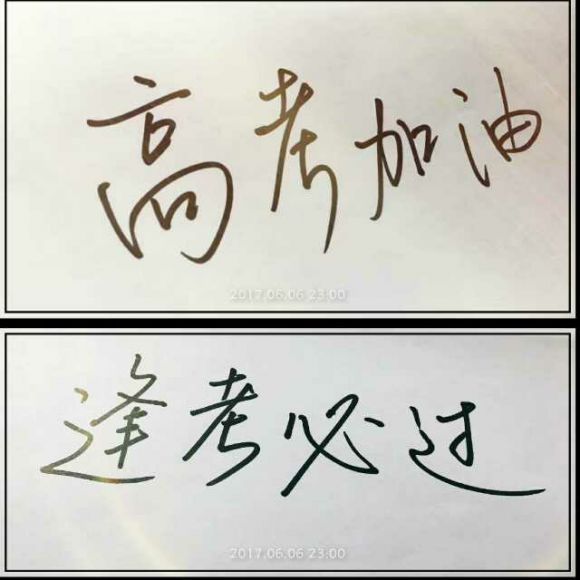 高考加油
2017.06.06 23:00
逢考必过
2017.06.06 23:00